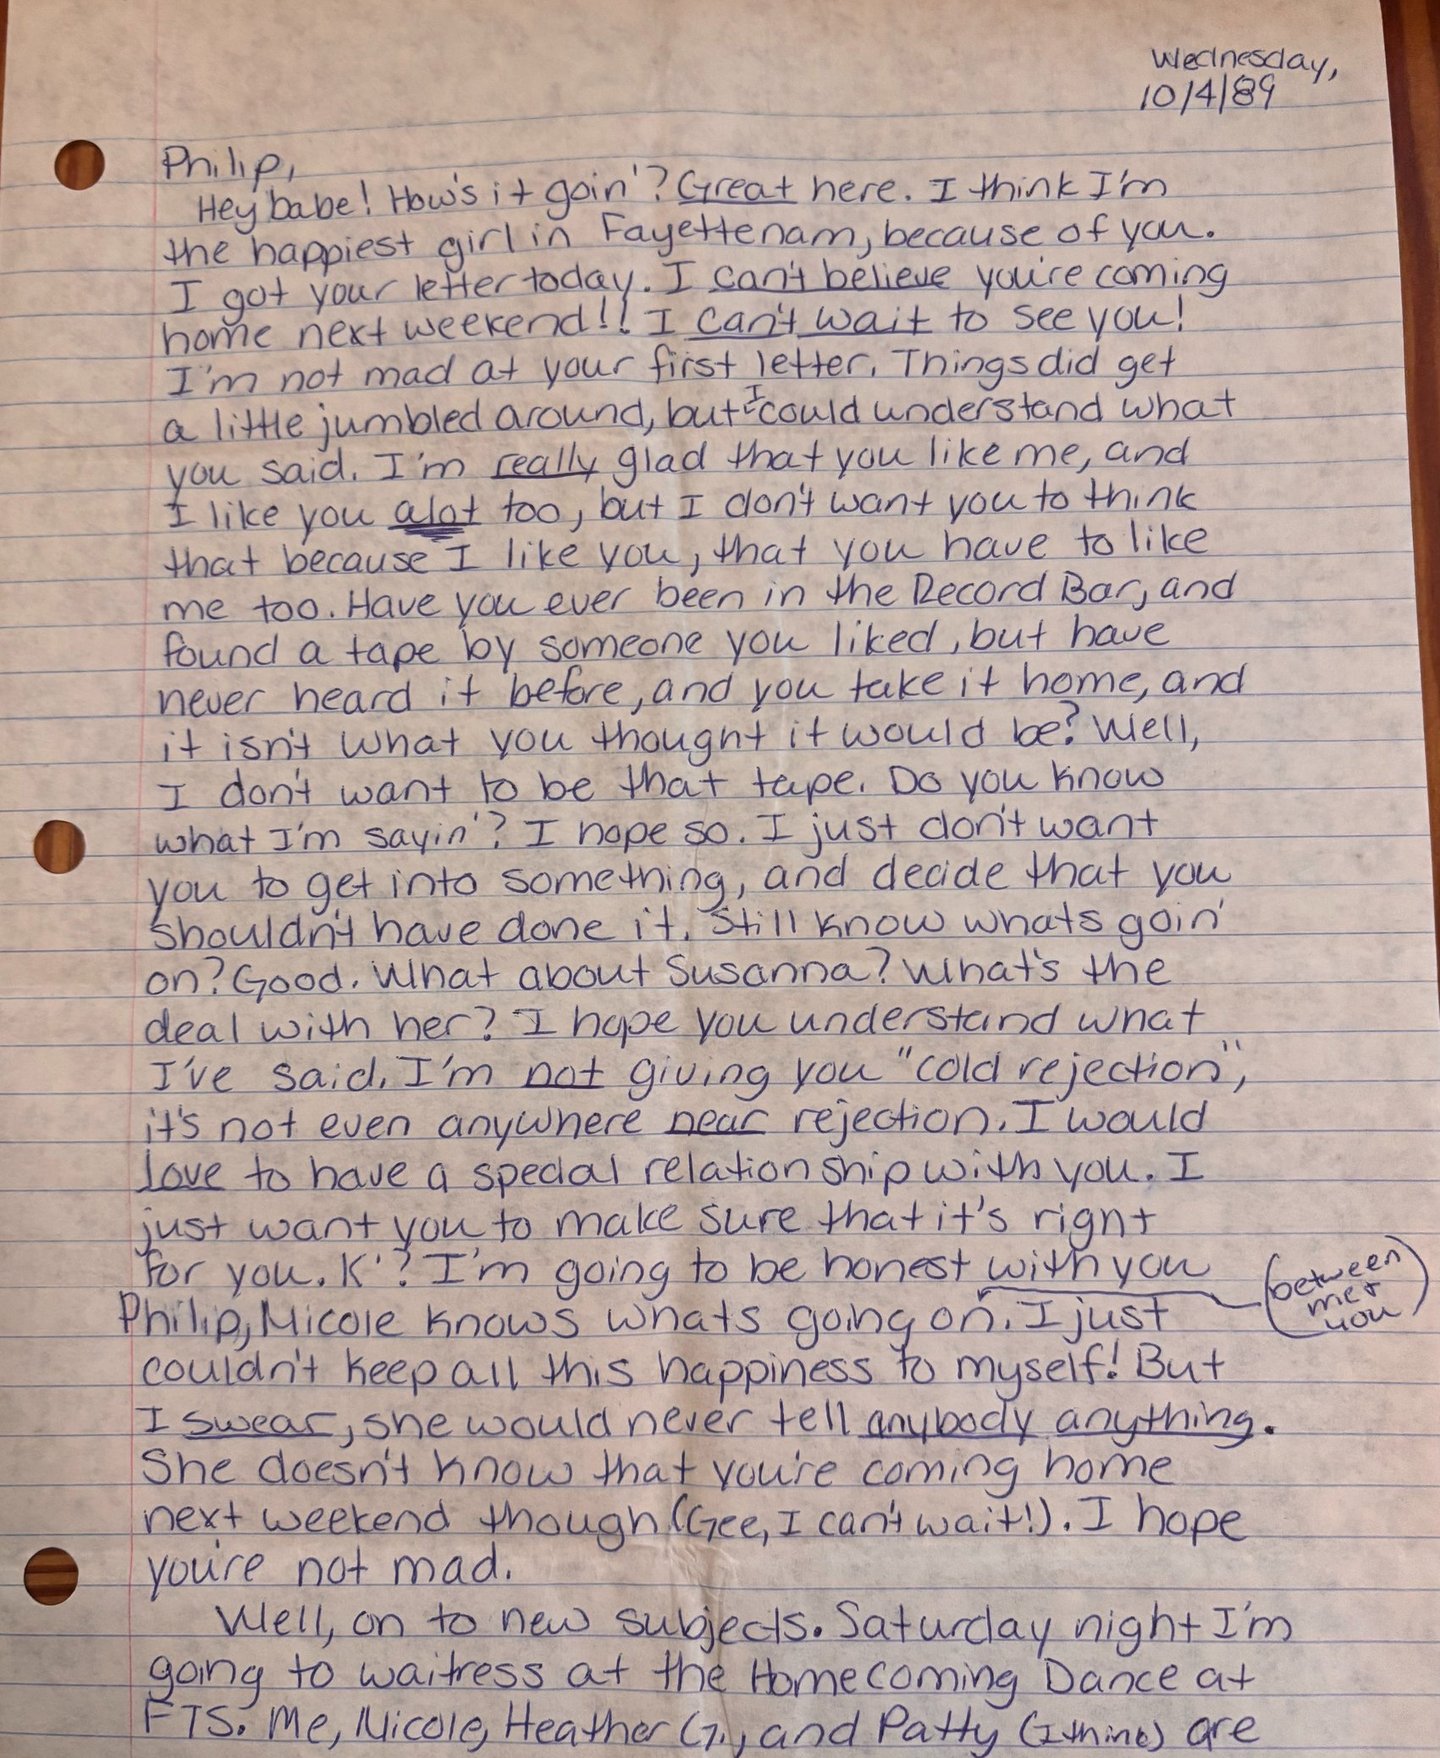 Wednesday,
10/4/89
Philip,
Hey babe! How's it goin'? Great here. I think I'm
the happiest girl in Fayettenam, because of you.
I got your letter today. I can't believe you're coming
home next weekend!! I can't wait to see you!
I'm not mad at your first letter. Things did get
a little jumbled around, but I could understand what
you said. I'm really glad that you like me, and
I like you alot too, but I don't want you to think
that because I like you, that you have to like
me too. Have you ever been in the Record Bar, and
found a tape by someone you liked, but have
never heard it before, and you take it home, and
it isn't what you thought it would be? Well,
I don't want to be that tape. Do you know
what I'm sayin'? I hope so. I just don't want
you to get into something, and decide that you
shouldn't have done it. Still know whats goin'
on? Good. What about Susanna? What's the
deal with her? I hope you understand what
I've said. I'm not giving you "cold rejection",
it's not even anywhere near rejection. I would
love to have a special relationship with you. I
just want you to make sure that it's right
for you. K'? I'm going to be honest with you
(between
me +
you)
Philip, Nicole knows whats going on. I just
couldn't keep all this happiness to myself! But
I swear, she would never tell anybody anything.
She doesn't know that you're coming home
next weekend though (Gee, I can't wait!). I hope
you're not mad.
Well, on to new subjects. Saturday night I'm
going to waitress at the Homecoming Dance at
FTS. Me, Nicole, Heather and Patty (I think) are